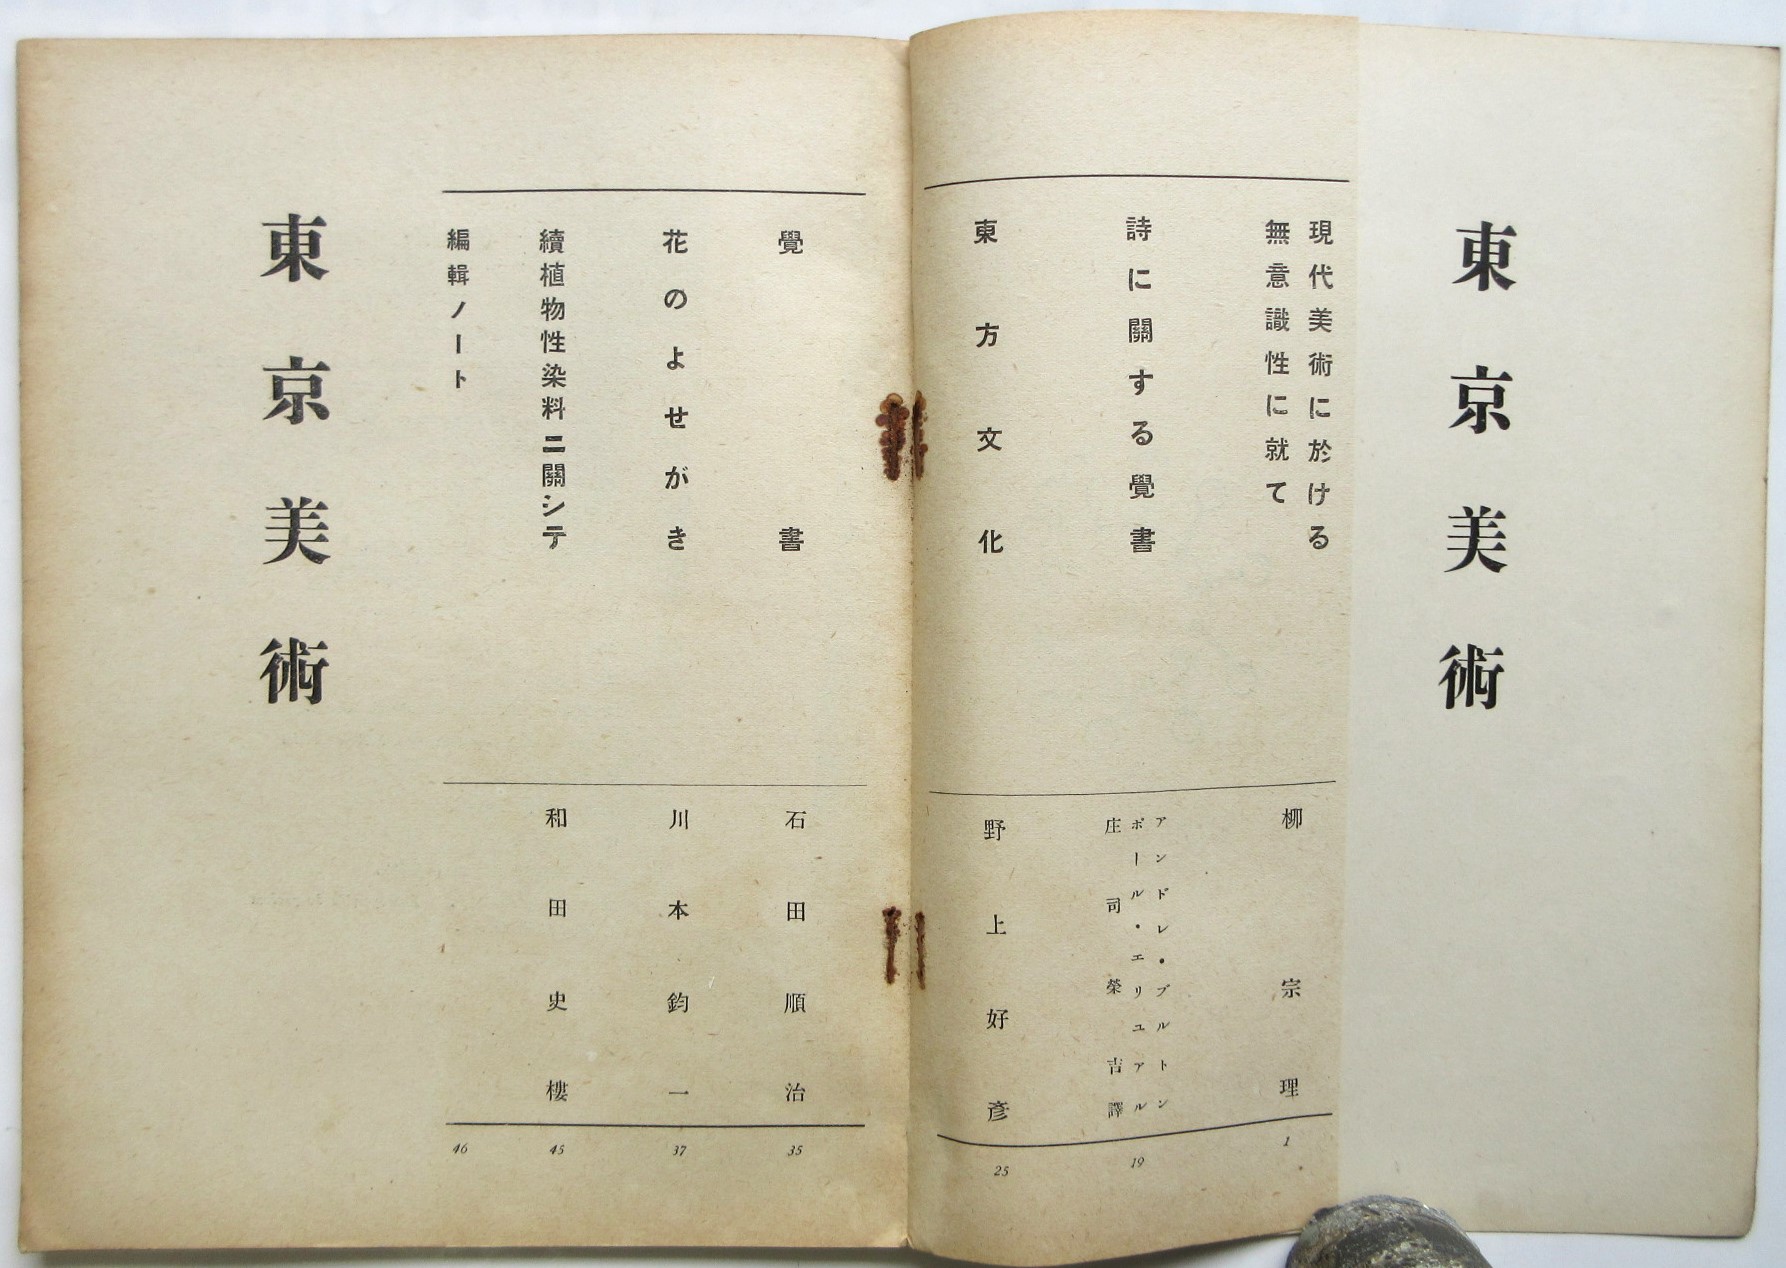 東京美術
現代美術に於ける
無意識性に就て
柳宗理
1
詩に關する覺書
アンドレ・ブルトン
ポール・エリユアル
庄司榮吉譯
19
東方文化
野上好彦
25
覺書
石田順治
35
花のよせがき
川本鈞一
37
續植物性染料ニ關シテ
和田史樓
45
編輯ノート
46
東京美術